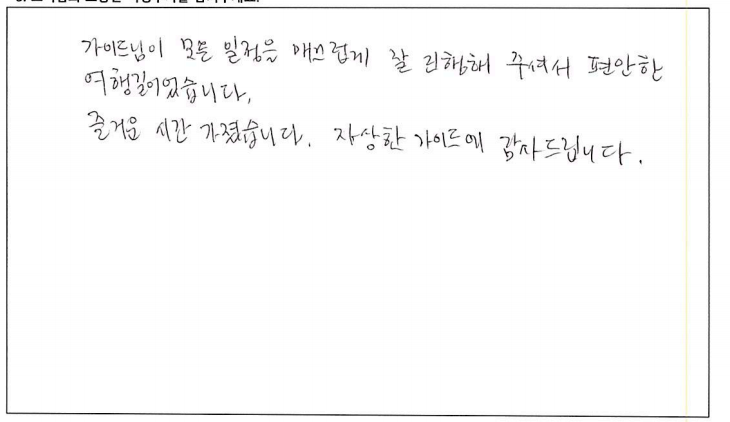 가이드님이 모든 일정을 매끄럽게 잘 진행해 주셔서 편안한
여행길이었습니다.
즐거운 시간 가졌습니다. 자상한 가이드에 감사드립니다.